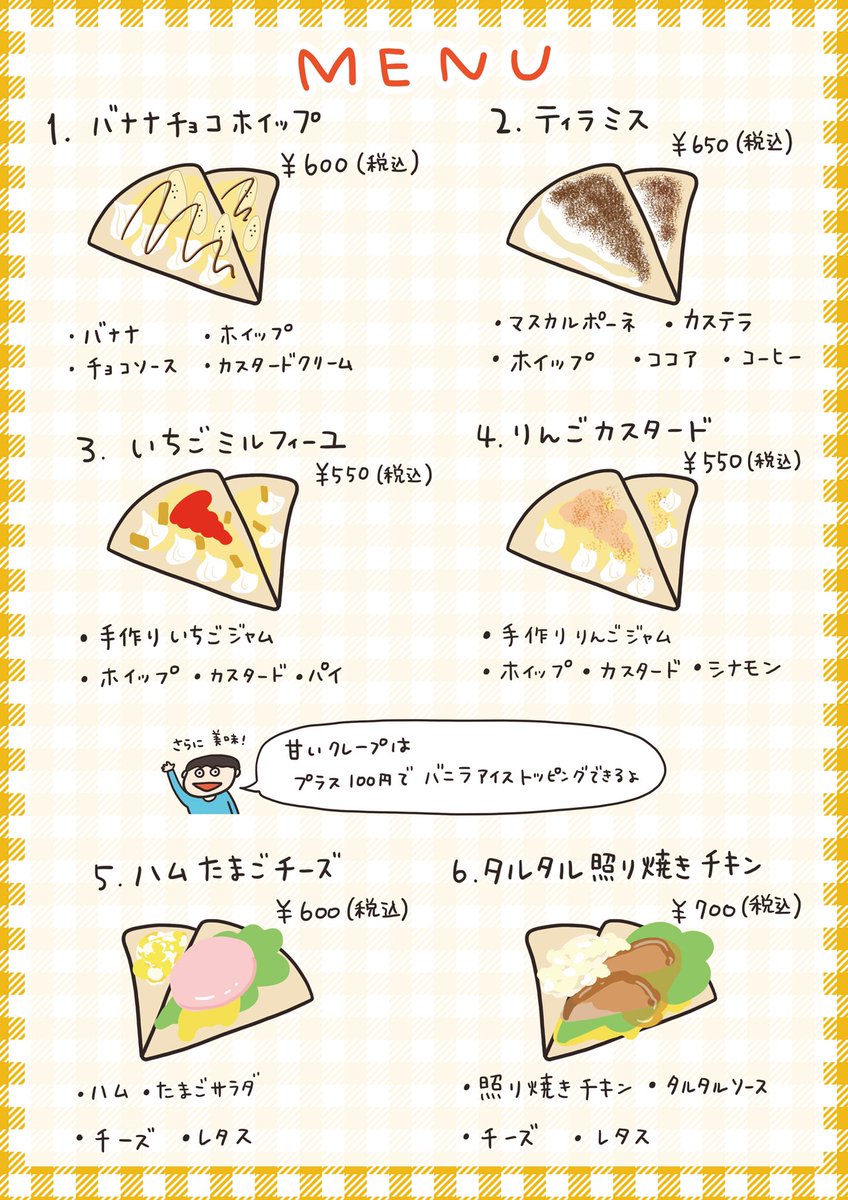 MENU
1. バナナチョコホイップ
¥600(税込)
・バナナ ・ホイップ
・チョコソース ・カスタードクリーム
2. ティラミス
¥650(税込)
・マスカルポーネ ・カステラ
・ホイップ ・ココア ・コーヒー
3. いちごミルフィーユ
¥550(税込)
・手作りいちごジャム
・ホイップ ・カスタード ・パイ
4. りんごカスタード
¥550(税込)
・手作りりんごジャム
・ホイップ ・カスタード ・シナモン
さらに美味!
甘いクレープは
プラス100円でバニラアイストッピングできるよ
5. ハムたまごチーズ
¥600(税込)
・ハム ・たまごサラダ
・チーズ ・レタス
6. タルタル照り焼きチキン
¥700(税込)
・照り焼きチキン ・タルタルソース
・チーズ ・レタス